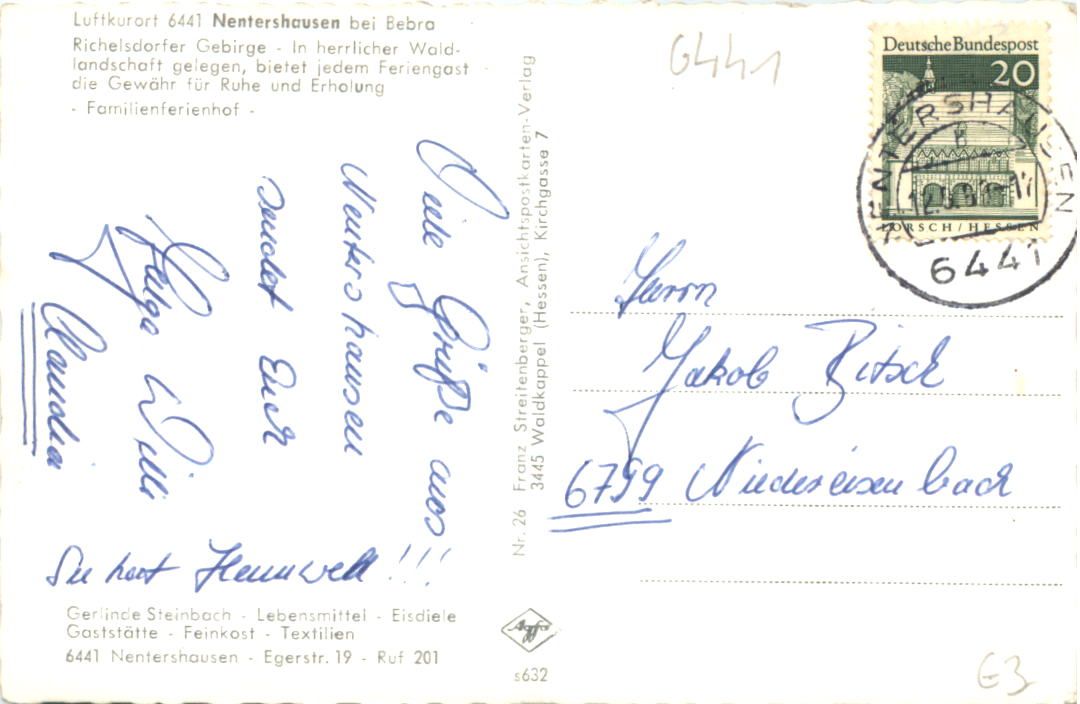 Luftkurort 6441 Nentershausen bei Bebra
Richelsdorfer Gebirge - In herrlicher Wald-
landschaft gelegen, bietet jedem Feriengast
die Gewähr für Ruhe und Erholung
- Familienferienhof -
6441
Deutsche Bundespost
20
LORSCH/HESSEN
NENTERSHAUSEN
6441
Viele Grüße aus
Nentershausen
sendet Euch
Helga Willi
Claudia
Sie hat Heimweh!!!
Nr. 26 Franz Streitenberger, Ansichtspostkarten-Verlag
3445 Waldkappel (Hessen), Kirchgasse 7
Herrn
Jakob Bitsch
6799 Niedereisenbach
Gerlinde Steinbach - Lebensmittel - Eisdiele
Gaststätte - Feinkost - Textilien
6441 Nentershausen - Egerstr. 19 - Ruf 201
Agfa
s632
€3